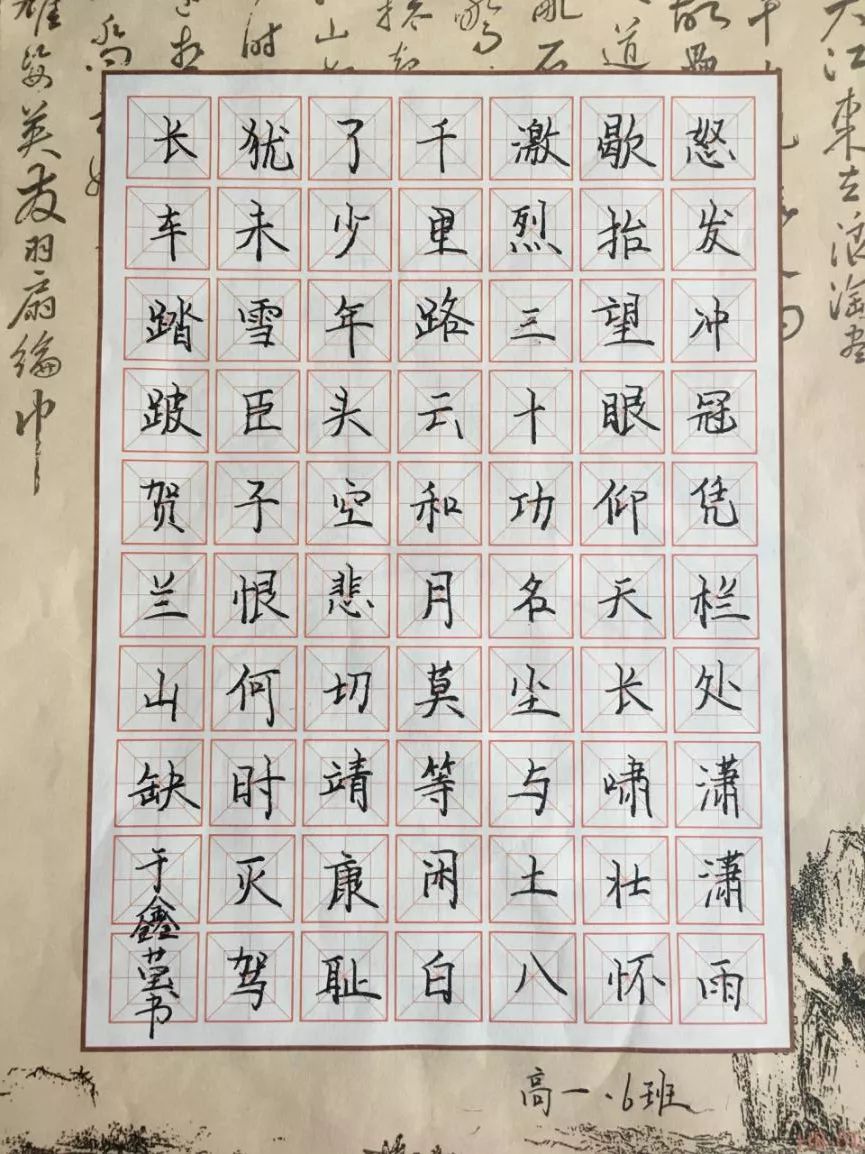 怒发冲冠凭栏处潇潇雨
歇抬望眼仰天长啸壮怀
激烈三十功名尘与土八
千里路云和月莫等闲白
了少年头空悲切靖康耻
犹未雪臣子恨何时灭驾
长车踏破贺兰山缺
于鑫莹书
高一.6班
大江东去浪淘尽
雄姿英发羽扇纶巾